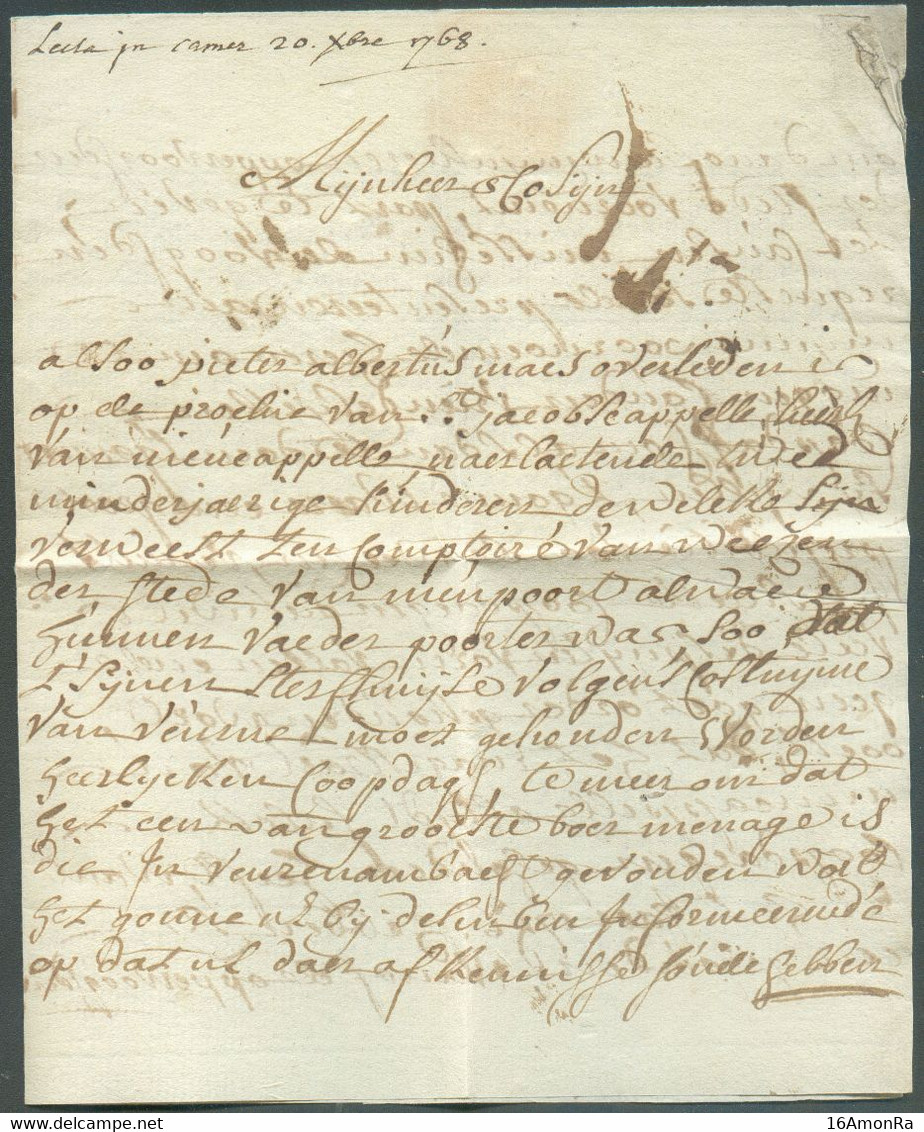 Lecta jn camer 20. Xbre 1768.
Mijnheer Cosijn
alsoo pieter albertus maes overleden is
op de prochie van St. Jacobscappelle, heerl.
van nieucappelle naerlaetende twee
minderjaerige kinderen dewelcke sijn
verweest ten Comptoire van weesen
der stede van nieupoort alwaer
hunnen vaeder poorter was soo dat
t'sijnen sterfhuijse volgens Costuyme
van veurne moet gehouden worden
heerlycken Coopdagh, te meer om dat
het een van grootste boer menage is
die in veurenambacht gevonden wort
het gonne ul by desen ben informeerende
op dat ul daer af kennisse soude hebben
16AmonRa